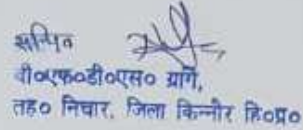 सचिव
वी०एफ०डी०एस० ग्रामे,
तह० निचार, जिला किन्नौर हि०प्र०